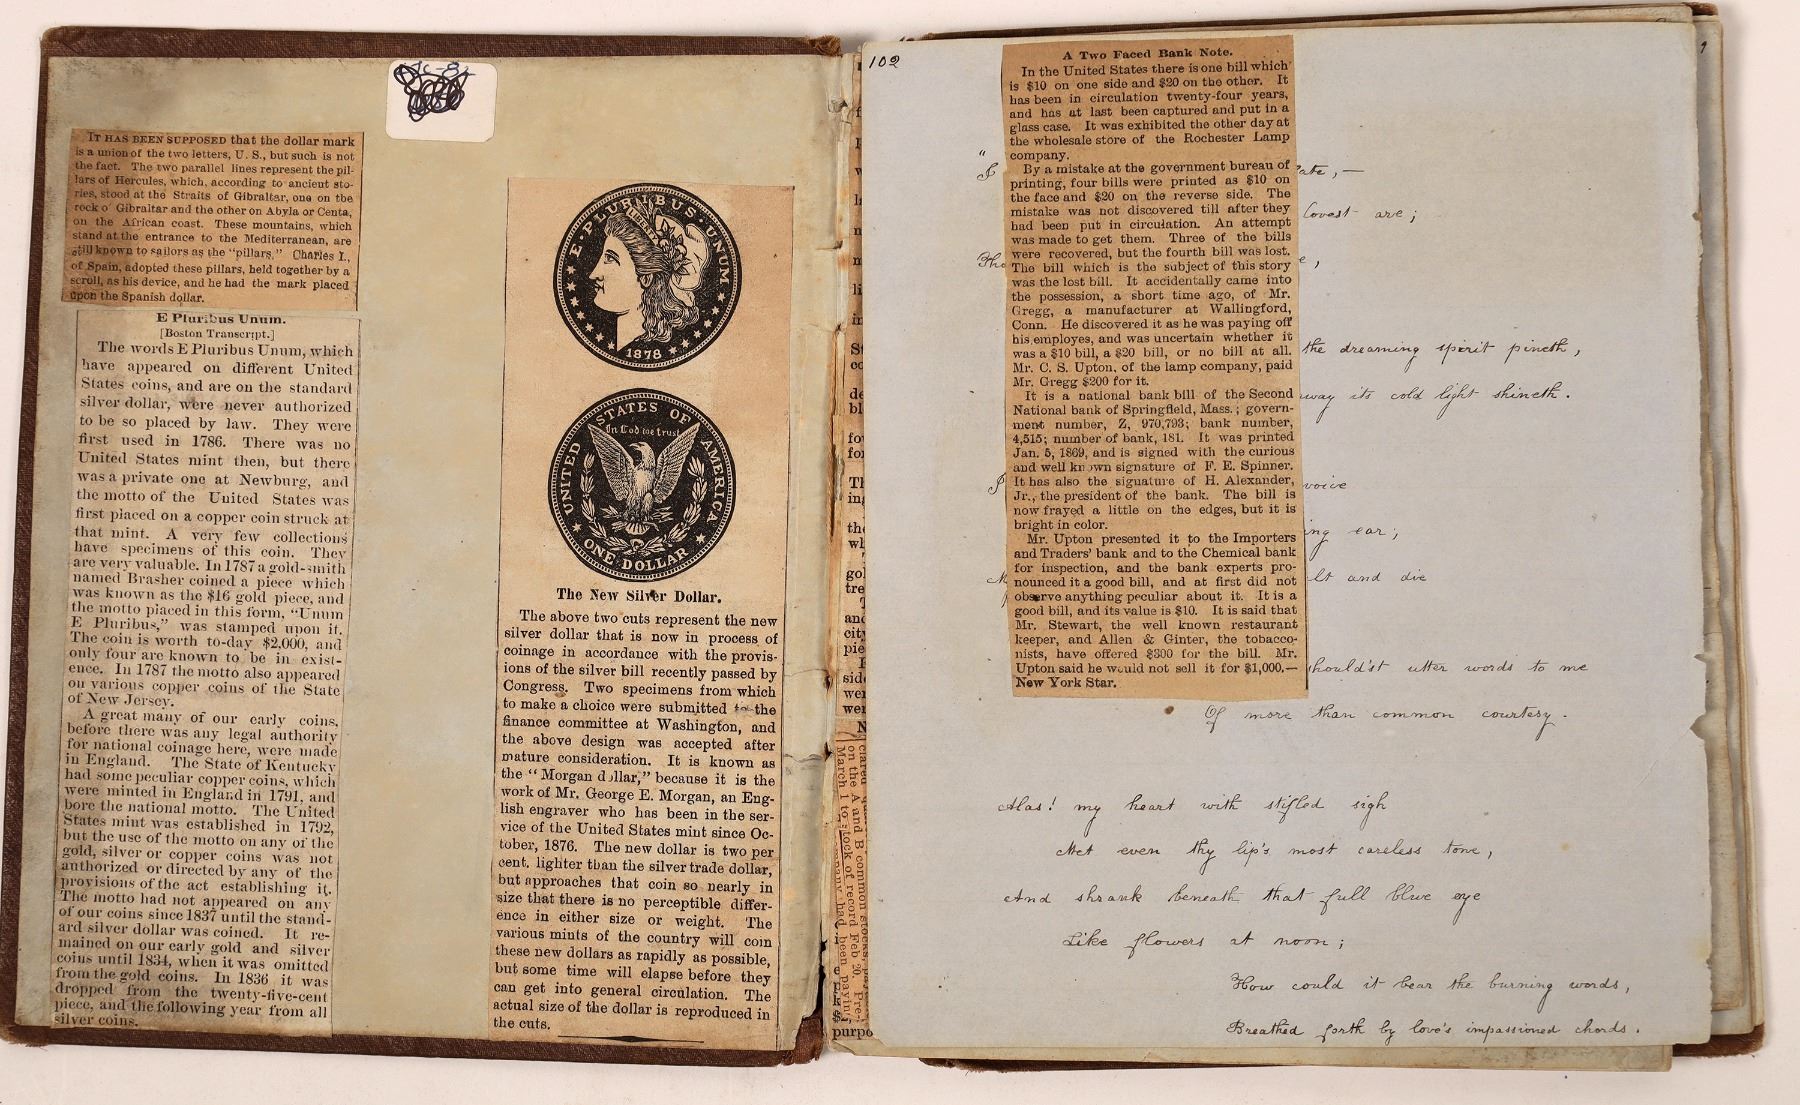 IT HAS BEEN SUPPOSED that the dollar mark
is a union of the two letters, U. S., but such is not
the fact. The two parallel lines represent the pil-
lars of Hercules, which, according to ancient sto-
ries, stood at the Straits of Gibraltar, one on the
rock o' Gibraltar and the other on Abyla or Centa,
on the African coast. These mountains, which
stand at the entrance to the Mediterranean, are
still known to sailors as the "pillars." Charles I.,
of Spain, adopted these pillars, held together by a
scroll, as his device, and he had the mark placed
upon the Spanish dollar.
E Pluribus Unum.
[Boston Transcript.]
The words E Pluribus Unum, which
have appeared on different United
States coins, and are on the standard
silver dollar, were never authorized
to be so placed by law. They were
first used in 1786. There was no
United States mint then, but there
was a private one at Newburg, and
the motto of the United States was
first placed on a copper coin struck at
that mint. A very few collections
have specimens of this coin. They
are very valuable. In 1787 a gold-smith
named Brasher coined a piece which
was known as the $16 gold piece, and
the motto placed in this form, "Unum
E Pluribus," was stamped upon it.
The coin is worth to-day $2,000, and
only four are known to be in exist-
ence. In 1787 the motto also appeared
on various copper coins of the State
of New Jersey.
A great many of our early coins,
before there was any legal authority
for national coinage here, were made
in England. The State of Kentucky
had some peculiar copper coins, which
were minted in England in 1791, and
bore the national motto. The United
States mint was established in 1792,
but the use of the motto on any of the
gold, silver or copper coins was not
authorized or directed by any of the
provisions of the act establishing it.
The motto had not appeared on any
of our coins since 1837 until the stand-
ard silver dollar was coined. It re-
mained on our early gold and silver
coins until 1834, when it was omitted
from the gold coins. In 1836 it was
dropped from the twenty-five-cent
piece, and the following year from all
silver coins.
E·PLURIBUS·UNUM
LIBERTY
1878
UNITED STATES OF AMERICA
In God we trust
ONE DOLLAR
The New Silver Dollar.
The above two cuts represent the new
silver dollar that is now in process of
coinage in accordance with the provis-
ions of the silver bill recently passed by
Congress. Two specimens from which
to make a choice were submitted to the
finance committee at Washington, and
the above design was accepted after
mature consideration. It is known as
the "Morgan dollar," because it is the
work of Mr. George E. Morgan, an Eng-
lish engraver who has been in the ser-
vice of the United States mint since Oc-
tober, 1876. The new dollar is two per
cent. lighter than the silver trade dollar,
but approaches that coin so nearly in
size that there is no perceptible differ-
ence in either size or weight. The
various mints of the country will coin
these new dollars as rapidly as possible,
but some time will elapse before they
can get into general circulation. The
actual size of the dollar is reproduced in
the cuts.
on the A and B common stocks,
March 1 to stock of record Feb 20. Pre-
had been paying
purpo
102
A Two Faced Bank Note.
In the United States there is one bill which
is $10 on one side and $20 on the other. It
has been in circulation twenty-four years,
and has at last been captured and put in a
glass case. It was exhibited the other day at
the wholesale store of the Rochester Lamp
company.
By a mistake at the government bureau of
printing, four bills were printed as $10 on
the face and $20 on the reverse side. The
mistake was not discovered till after they
had been put in circulation. An attempt
was made to get them. Three of the bills
were recovered, but the fourth bill was lost.
The bill which is the subject of this story
was the lost bill. It accidentally came into
the possession, a short time ago, of Mr.
Gregg, a manufacturer at Wallingford,
Conn. He discovered it as he was paying off
his employes, and was uncertain whether it
was a $10 bill, a $20 bill, or no bill at all.
Mr. C. S. Upton, of the lamp company, paid
Mr. Gregg $200 for it.
It is a national bank bill of the Second
National bank of Springfield, Mass.; govern-
ment number, Z, 970,793; bank number,
4,515; number of bank, 181. It was printed
Jan. 5, 1869, and is signed with the curious
and well known signature of F. E. Spinner.
It has also the signature of H. Alexander,
Jr., the president of the bank. The bill is
now frayed a little on the edges, but it is
bright in color.
Mr. Upton presented it to the Importers
and Traders' bank and to the Chemical bank
for inspection, and the bank experts pro-
nounced it a good bill, and at first did not
observe anything peculiar about it. It is a
good bill, and its value is $10. It is said that
Mr. Stewart, the well known restaurant
keeper, and Allen & Ginter, the tobacco-
nists, have offered $300 for the bill. Mr.
Upton said he would not sell it for $1,000.—
New York Star.
"I
ate,—
lovest are;
Tho
the dreaming spirit pineth,
way its cold light shineth.
voice
ing ear;
lt and die
should'st utter words to me
Of more than common courtesy.
Alas! my heart with stifled sigh
Met even thy lip's most careless tone,
And shrank beneath that full blue eye
Like flowers at noon;
How could it bear the burning words,
Breathed forth by love's impassioned chords.